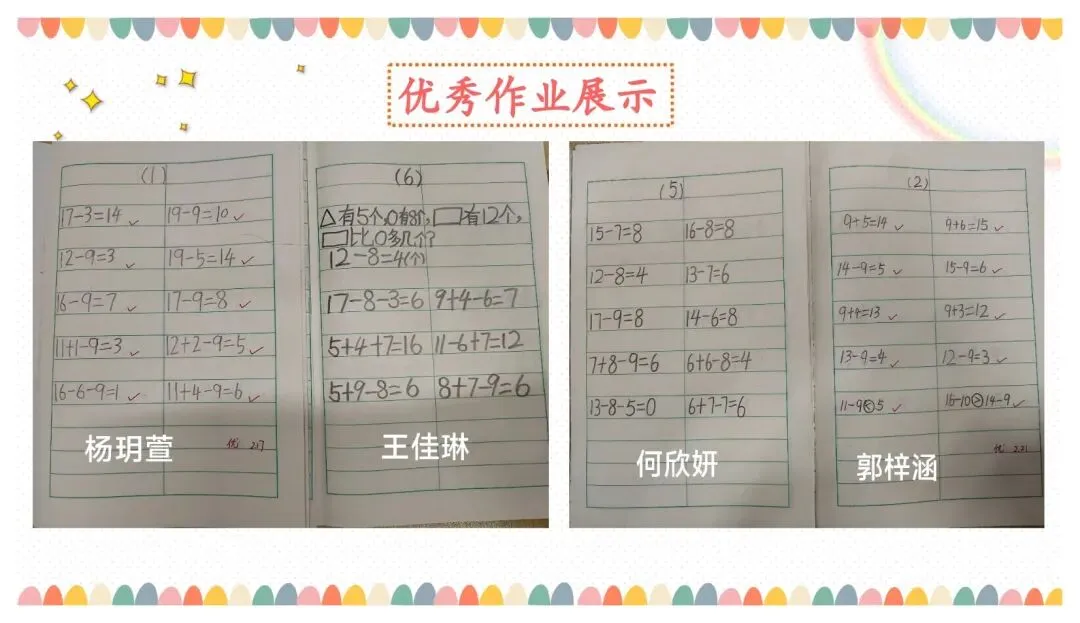 优秀作业展示
(1)
17-3=14 ✓ 19-9=10 ✓
12-9=3 ✓ 19-5=14 ✓
16-9=7 ✓ 17-9=8 ✓
11+1-9=3 ✓ 12+2-9=5 ✓
16-6-9=1 ✓ 11+4-9=6 ✓
优 2.17
杨玥萱
(6)
△有5个,○有8个,▭有12个,
▭比○多几个?
12-8=4(个)
17-8-3=6 9+4-6=7
5+4+7=16 11-6+7=12
5+9-8=6 8+7-9=6
王佳琳
(5)
15-7=8 16-8=8
12-8=4 13-7=6
17-9=8 14-6=8
7+8-9=6 6+6-8=4
13-8-5=0 6+7-7=6
何欣妍
(2)
9+5=14 ✓ 9+6=15 ✓
14-9=5 ✓ 15-9=6 ✓
9+4=13 ✓ 9+3=12 ✓
13-9=4 ✓ 12-9=3 ✓
11-9<5 ✓ 16-10>14-9 ✓
优 2.21
郭梓涵